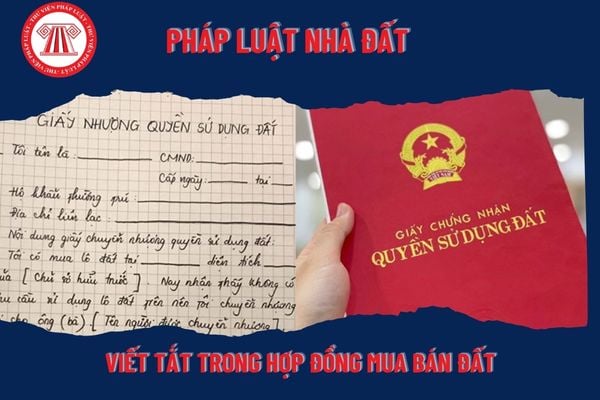 THƯ VIỆN PHÁP LUẬT
PHÁP LUẬT NHÀ ĐẤT
GIẤY NHƯỜNG QUYỀN SỬ DỤNG ĐẤT
Tôi tên là: CMND:
Cấp ngày: tại
Hộ khẩu thường trú:
Địa chỉ liên lạc:
Nội dung giấy chuyển nhượng quyền sử dụng đất:
Tôi có mua lô đất tại diện tích
[Chủ sở hữu trước]. Nay nhận thấy không có
cầu sử dụng lô đất trên nên tôi chuyển nhượng
cho ông (bà) [Tên người được chuyển nhượng]
VIỆT NAM
GIẤY CHỨNG NHẬN
QUYỀN SỬ DỤNG ĐẤT
VIẾT TẮT TRONG HỢP ĐỒNG MUA BÁN ĐẤT